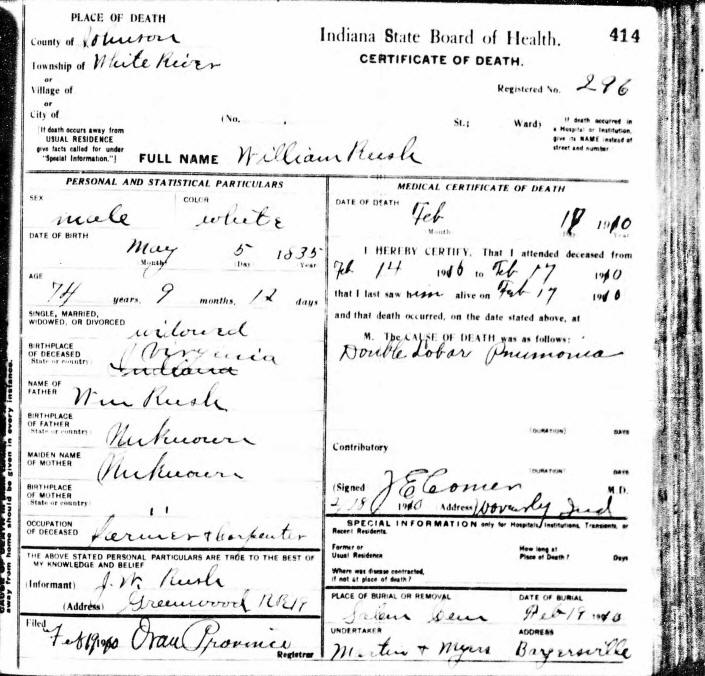 PLACE OF DEATH
County of Johnson
Township of White River
or
Village of
or
City of
(If death occurs away from
USUAL RESIDENCE
give facts called for under
"Special Information.")
Indiana State Board of Health.
414
CERTIFICATE OF DEATH.
Registered No. 296
(No. St.; Ward)
If death occurred in
a Hospital or Institution,
give its NAME instead of
street and number
FULL NAME William Rush
PERSONAL AND STATISTICAL PARTICULARS
SEX male COLOR white
DATE OF BIRTH
May 5 1835
Month (Day Year
AGE
74 years, 9 months, 12 days
SINGLE, MARRIED,
WIDOWED, OR DIVORCED widowed
BIRTHPLACE
OF DECEASED
State or country) Virginia
Indiana
NAME OF
FATHER Wm Rush
BIRTHPLACE
OF FATHER
State or country) Unknown
MAIDEN NAME
OF MOTHER Unknown
BIRTHPLACE
OF MOTHER
State or country) "
OCCUPATION
OF DECEASED Farmer + Carpenter
THE ABOVE STATED PERSONAL PARTICULARS ARE TRUE TO THE BEST OF
MY KNOWLEDGE AND BELIEF
(Informant) J. W. Rush
(Address) Greenwood RR 19
Filed
Feb 19 1910 Oran Province
Registrar
MEDICAL CERTIFICATE OF DEATH
DATE OF DEATH
Feb 17 1910
Month Day Year
I HEREBY CERTIFY, That I attended deceased from
Feb 14 1910 to Feb 17 1910
that I last saw him alive on Feb 17 1910
and that death occurred, on the date stated above, at
M. The CAUSE OF DEATH was as follows:
Double Lobar Pnumonia
(DURATION) DAYS
Contributory
(DURATION) DAYS
(Signed J E Comer M.D.
2/18 1910 (Address) Waverly Ind
SPECIAL INFORMATION only for Hospitals, Institutions, Transients, or
Recent Residents.
Former or
Usual Residence
How long at
Place of Death? Days
Where was disease contracted,
if not at place of death?
PLACE OF BURIAL OR REMOVAL
Salem Cem
DATE OF BURIAL
Feb 19 1910
UNDERTAKER
Martin + Myers
ADDRESS
Bargersville
away from home should be given in every instance.